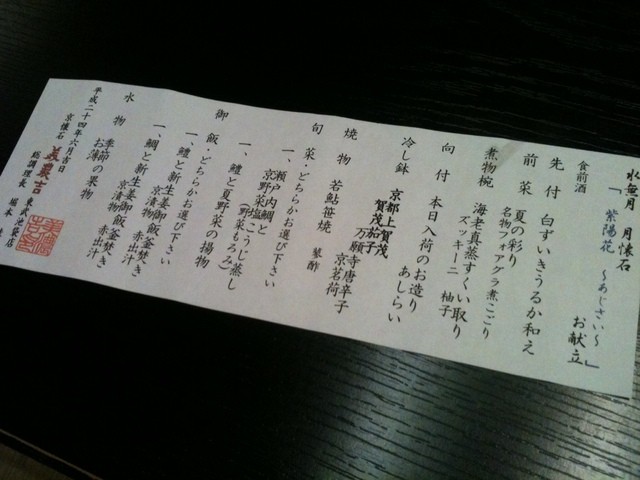 水無月 月懐石
「紫陽花 ～あじさい～」
お献立
食前酒
先付 白ずいきうるか和え
前菜 夏の彩り
名物フォアグラ煮こごり
煮物椀 海老真蒸すくい取り
ズッキーニ 柚子
向付 本日入荷のお造り
あしらい
冷し鉢 京都上賀茂
賀茂茄子
万願寺唐辛子
京茗荷
焼物 若鮎笹焼 蓼酢
旬菜・どちらかお選び下さい
一、瀬戸内鯛と
京野菜塩こうじ蒸し
一、鱧と夏野菜の揚物
(野菜もろみ)
御飯・どちらかお選び下さい
一、鱧と新生姜御飯釜焚き
京漬物 赤出汁
一、鯛と新生姜御飯釜焚き
京漬物 赤出汁
水物 季節の果物
お薄
平成二十四年六月吉日
京懐石 美濃吉
総調理長 堀本